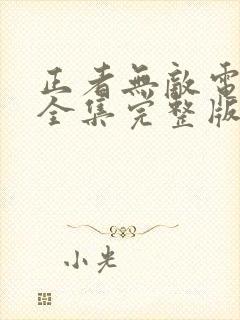 正者無敵電
全集完整版
小光